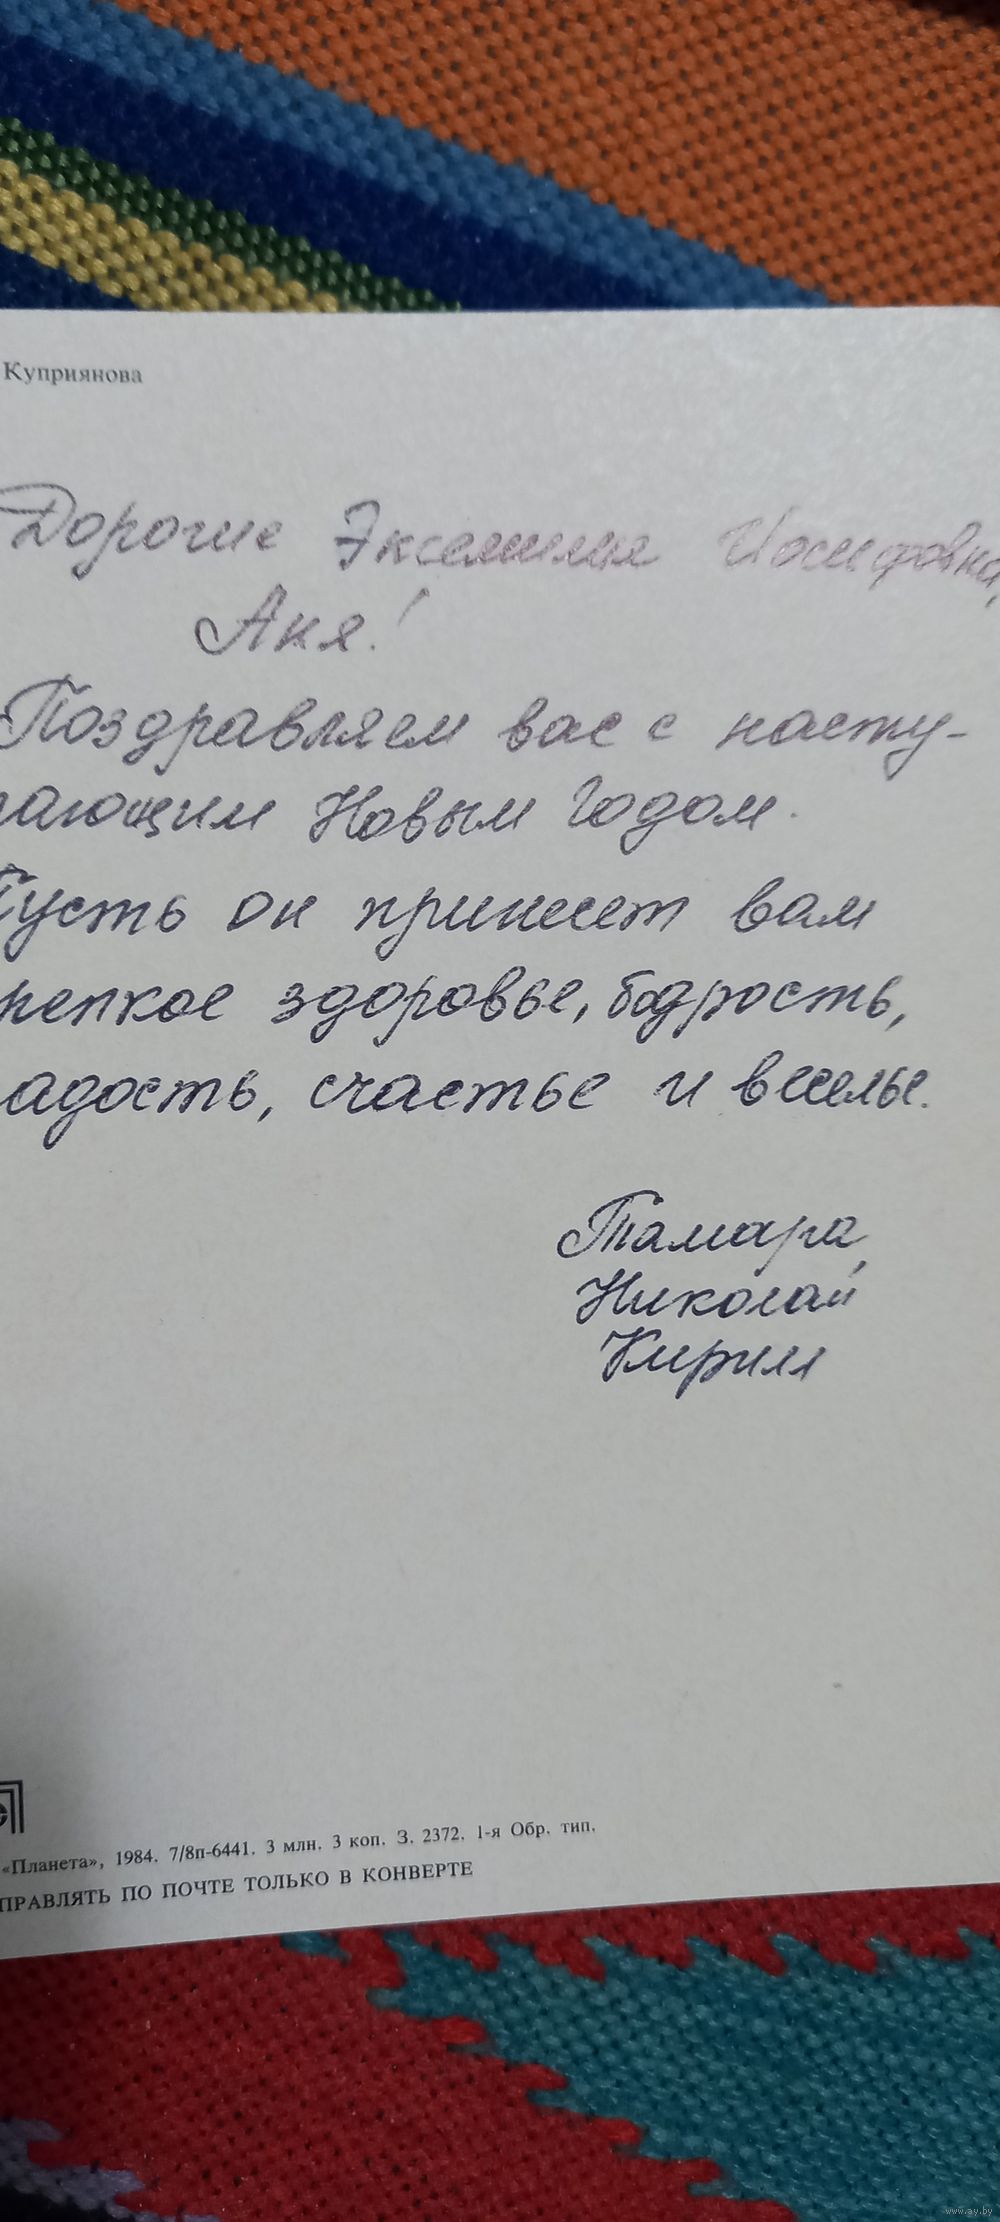 Куприянова
Дорогие Экселилия Иосифовна,
Аня!
Поздравляем вас с насту-
пающим Новым Годом.
Пусть он принесет вам
репкое здоровье, бодрость,
адость, счастье и веселье.
Тамара,
Николай
Кирилл
«Планета», 1984. 7/8п-6441. 3 млн. 3 коп. З. 2372. 1-я Обр. тип.
ПРАВЛЯТЬ ПО ПОЧТЕ ТОЛЬКО В КОНВЕРТЕ
www.ay.by